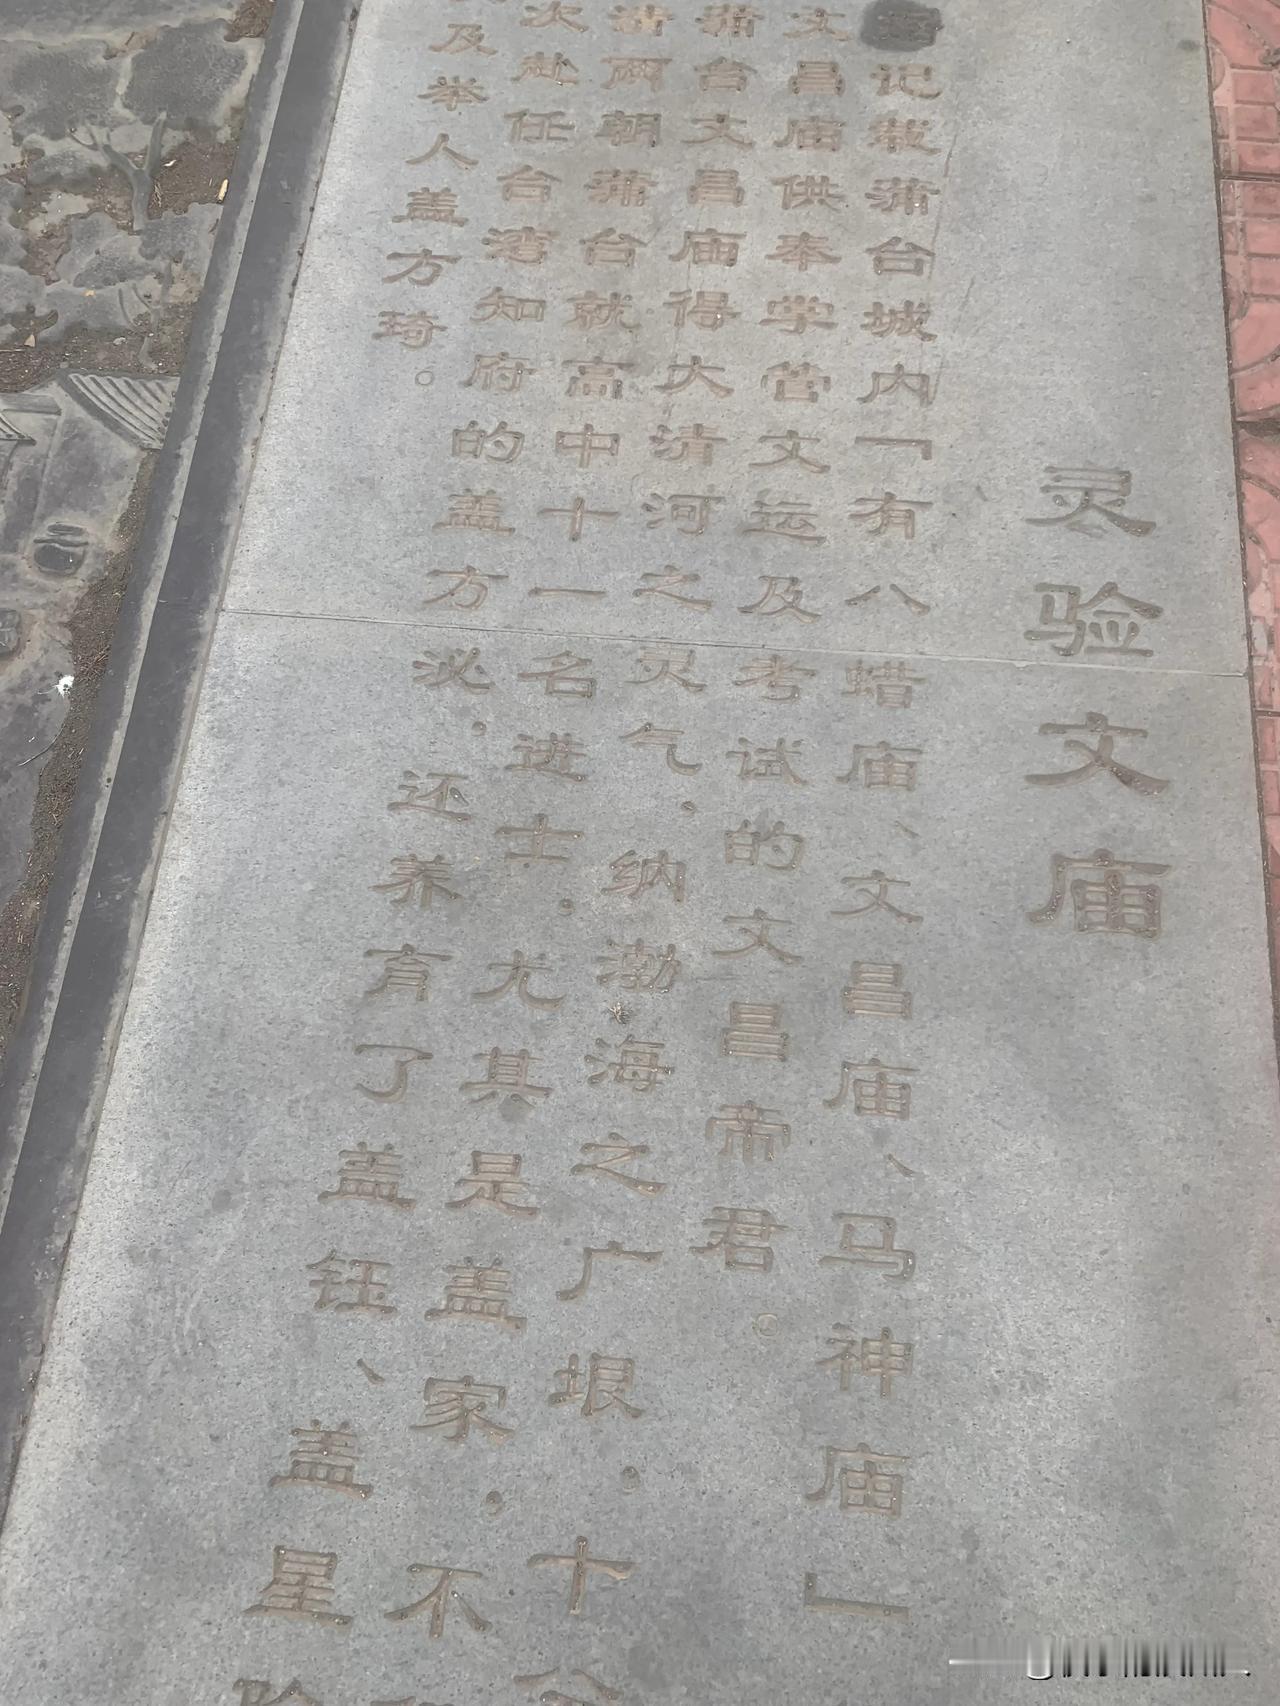 灵验文庙
记载蒲台城内「有八蜡庙、文昌庙、马神庙」
文昌庙供奉掌管文运及考试的文昌帝君。
蒲台文昌庙得大清河之灵气，纳渤海之广垠，十
清两朝蒲台就高中十一名进士，尤其是盖家，不
次赴任台湾知府的盖方泌，还养育了盖钰、盖星
及举人盖方琦。